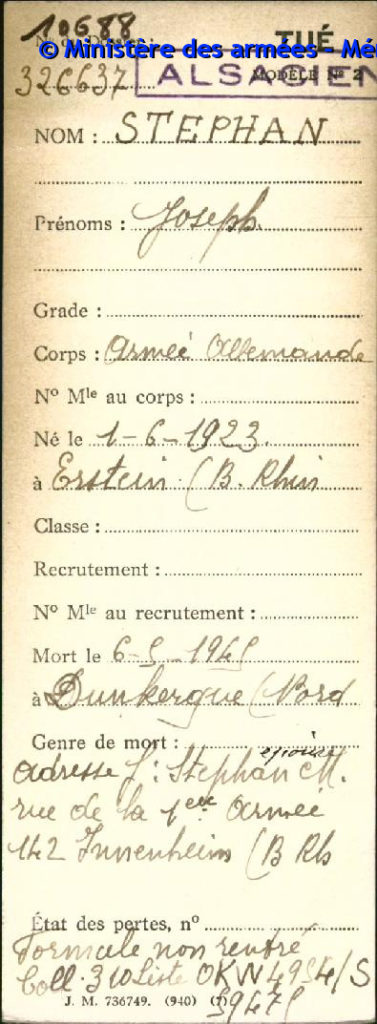 10688
TUÉ
© Ministère des armées - Mé
326637 ALSACIEN MODÈLE N° 2
NOM : STEPHAN
Prénoms : Joseph.
Grade :
Corps : Armeé Allemande
N° Mle au corps :
Né le 1-6-1923.
à Erstein (B. Rhin
Classe :
Recrutement :
N° Mle au recrutement :
Mort le 6-5-1945
à Dunkergue (Nord
Genre de mort :
épouse
adresse f: Stephan M.
rue de la 1ere Armeé
142 Innenheim (B Rh
État des pertes, n°
Formule non rentré
Coll. 310 Liste OKW 4954/S
J. M. 736749. (940) (7) 59475